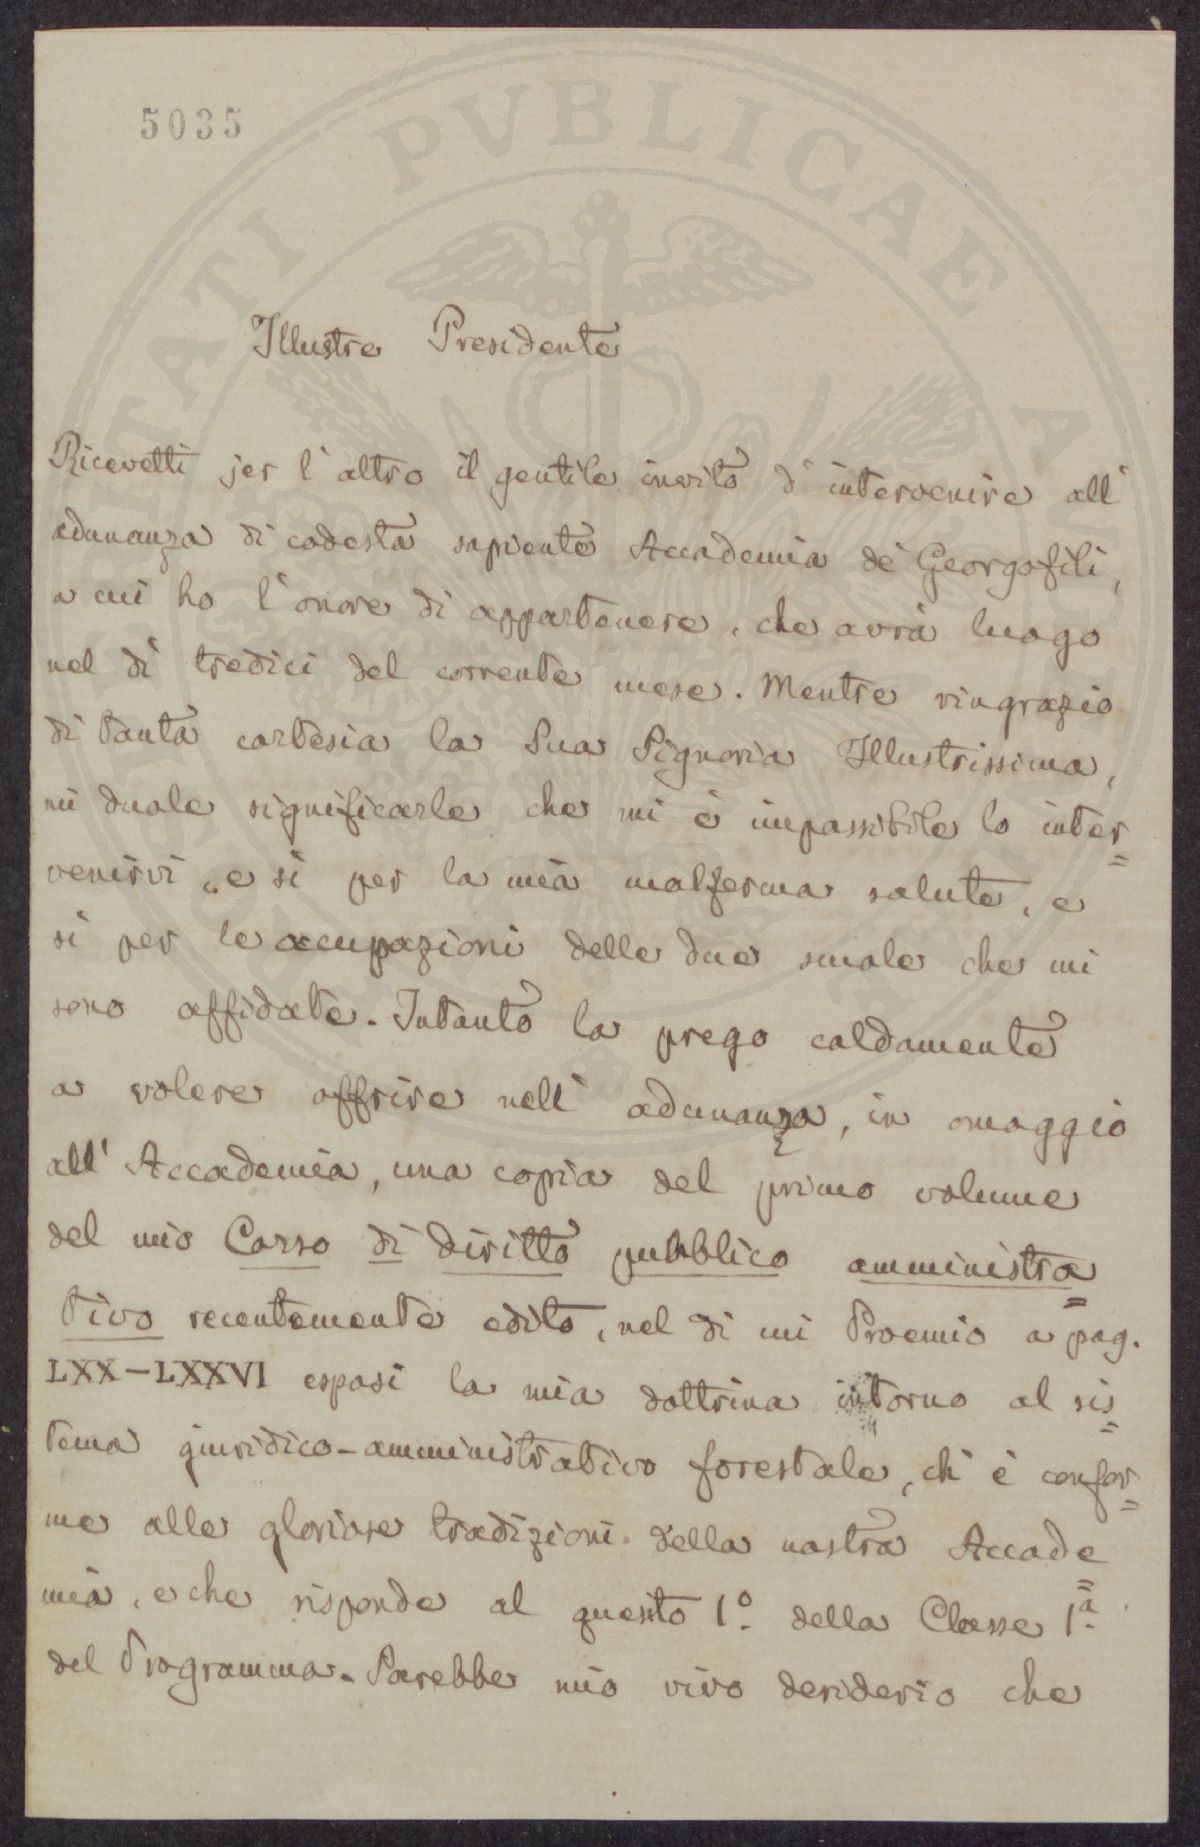 5035
PROSPERITATI PVBLICAE AVGENDAE
Illustre Presidente
Ricevetti jer l'altro il gentile invito d'intervenire all'
adunanza di codesta sapiente Accademia de' Georgofili,
a cui ho l'onore di appartenere, che avrà luogo
nel dì tredici del corrente mese. Mentre ringrazio
di tanta cortesia la Sua Signoria Illustrissima,
mi duole significarle che mi è impossibile lo inter=
venirvi, e sì per la mia malferma salute, e
sì per le occupazioni delle due scuole che mi
sono affidate. Intanto la prego caldamente
a volere offrire nell'adunanza, in omaggio
all'Accademia, una copia del primo volume
del mio Corso di diritto pubblico amministra=
tivo recentemente edito, nel di cui Proemio a pag.
LXX-LXXVI esposi la mia dottrina intorno al sis=
tema giuridico-amministrativo forestale, ch'è confor=
me alle gloriose tradizioni della nostra Accade=
mia, e che risponde al quesito 1.º della Classe 1.ª
del Programma. Sarebbe mio vivo desiderio che